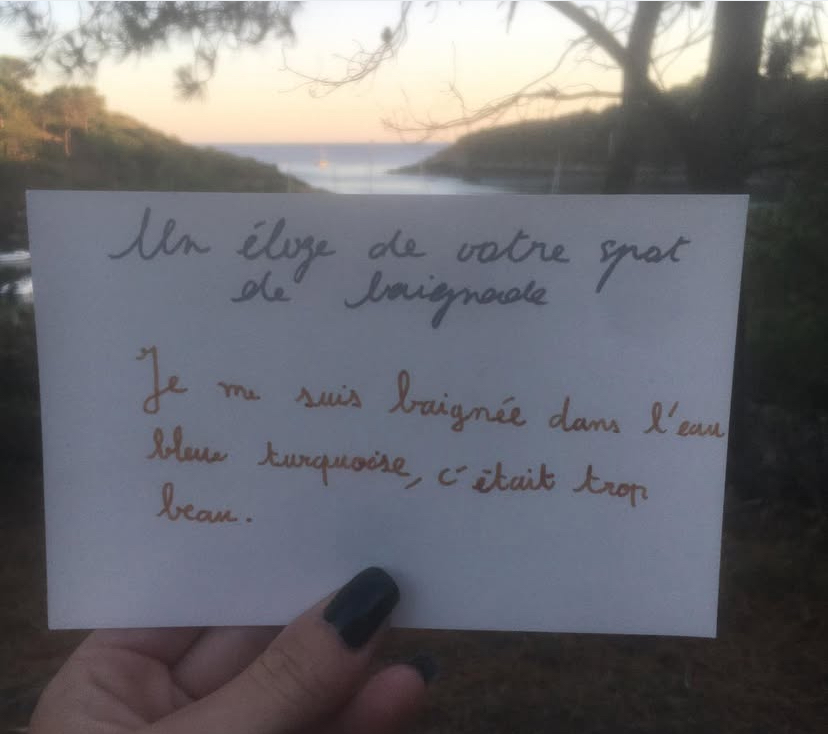 Un éloge de votre spot
de baignade
Je me suis baignée dans l'eau
bleue turquoise, c'était trop
beau.